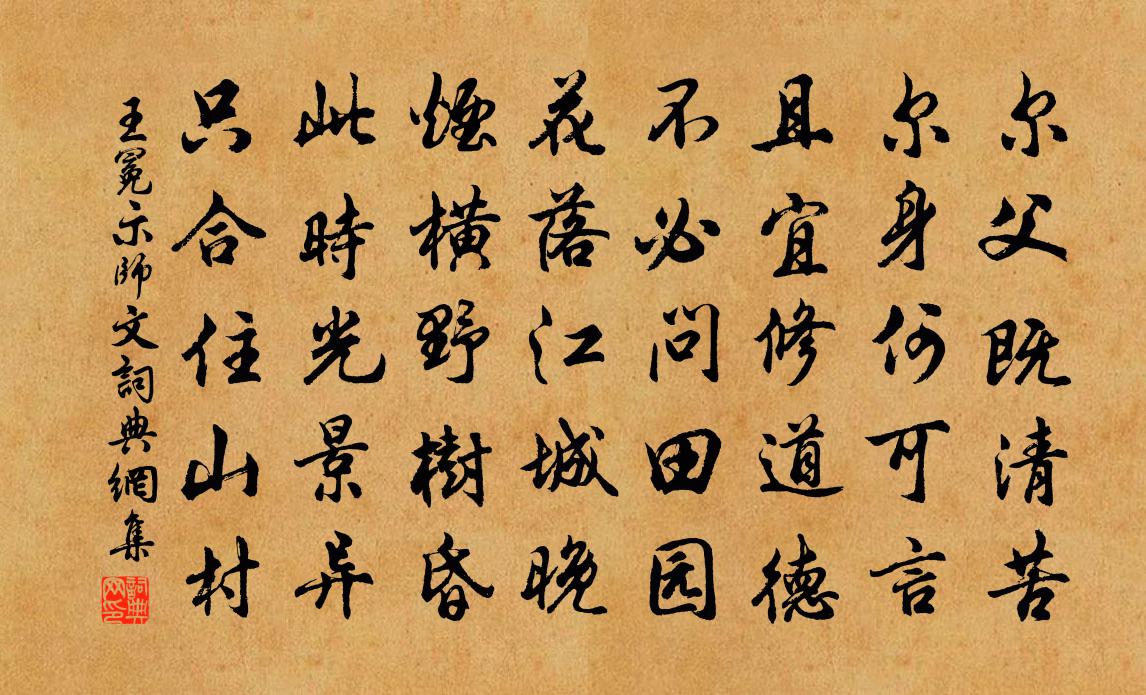 尔父既清苦
尔身何可言
且宜修道德
不必问田园
花落江城晚
烟横野樹昏
此時光景异
只合住山村
王冕示師文詞典網集
詞典网印